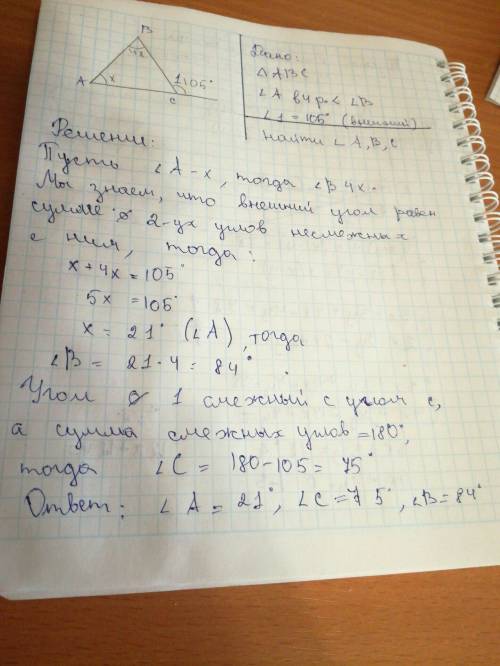 B
4x
A
x
1
105°
C
Дано:
△ABC
∠A в 4 р. < ∠B
∠1 = 105° (внешний)
Найти ∠A, B, C
Решение:
Пусть ∠A - x, тогда ∠B 4x.
Мы знаем, что внешний угол равен
сумме 2-ух углов несмежных
с ним, тогда:
x + 4x = 105°
5x = 105°
x = 21° (∠A), тогда
∠B = 21·4 = 84°.
Угол 1 смежный с углом c,
а сумма смежных углов = 180°,
тогда ∠C = 180-105 = 75°
Ответ: ∠A = 21°, ∠C = 75°, ∠B = 84°